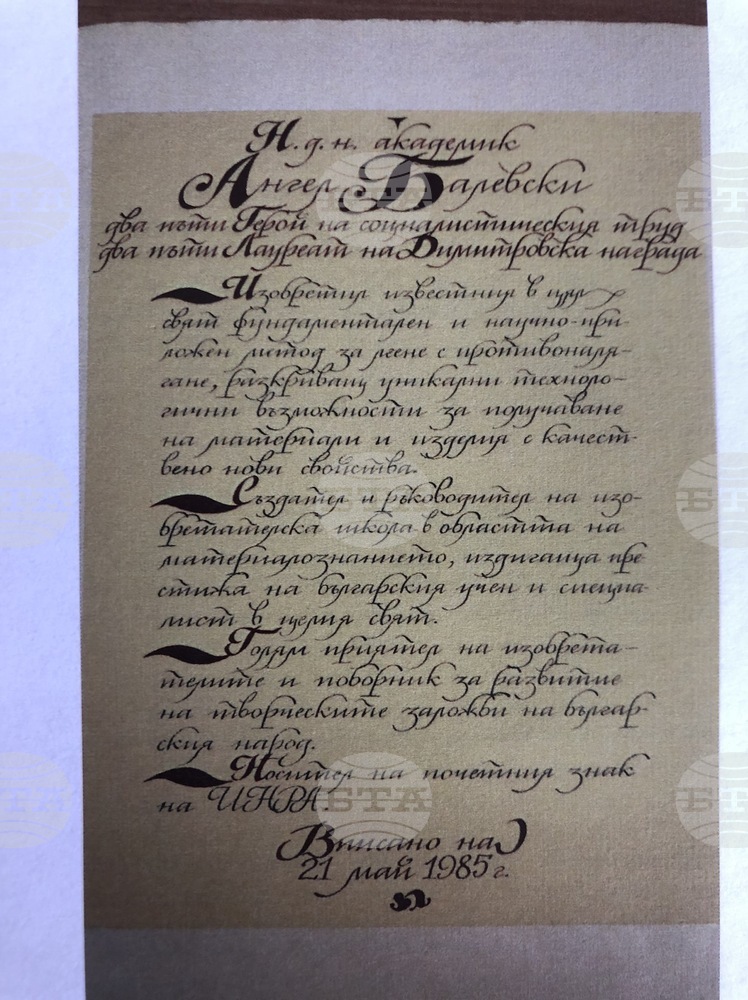 Н. д. н. академик
Ангел Балевски
два пъти Герой на социалистическия труд
два пъти Лауреат на Димитровска награда
Изобретил известния в цял
свят фундаментален и научно-при-
ложен метод за леене с противоналя-
гане, разкриващ уникални техноло-
гични възможности за получаване
на материали и изделия с качест-
вено нови свойства.
Създател и ръководител на изо-
бретателска школа в областта на
материалознанието, издигаща пре
стижа на българския учен и специа-
лист в целия свят.
Голям приятел на изобрета-
телите и поборник за развитие
на творческите заложби на българ-
ския народ.
Носител на почетния знак
на ИНРА.
Вписано на
21 май 1985 г.
БТА